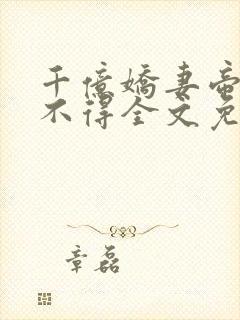 千億嬌妻蜜
不得全文免
章磊